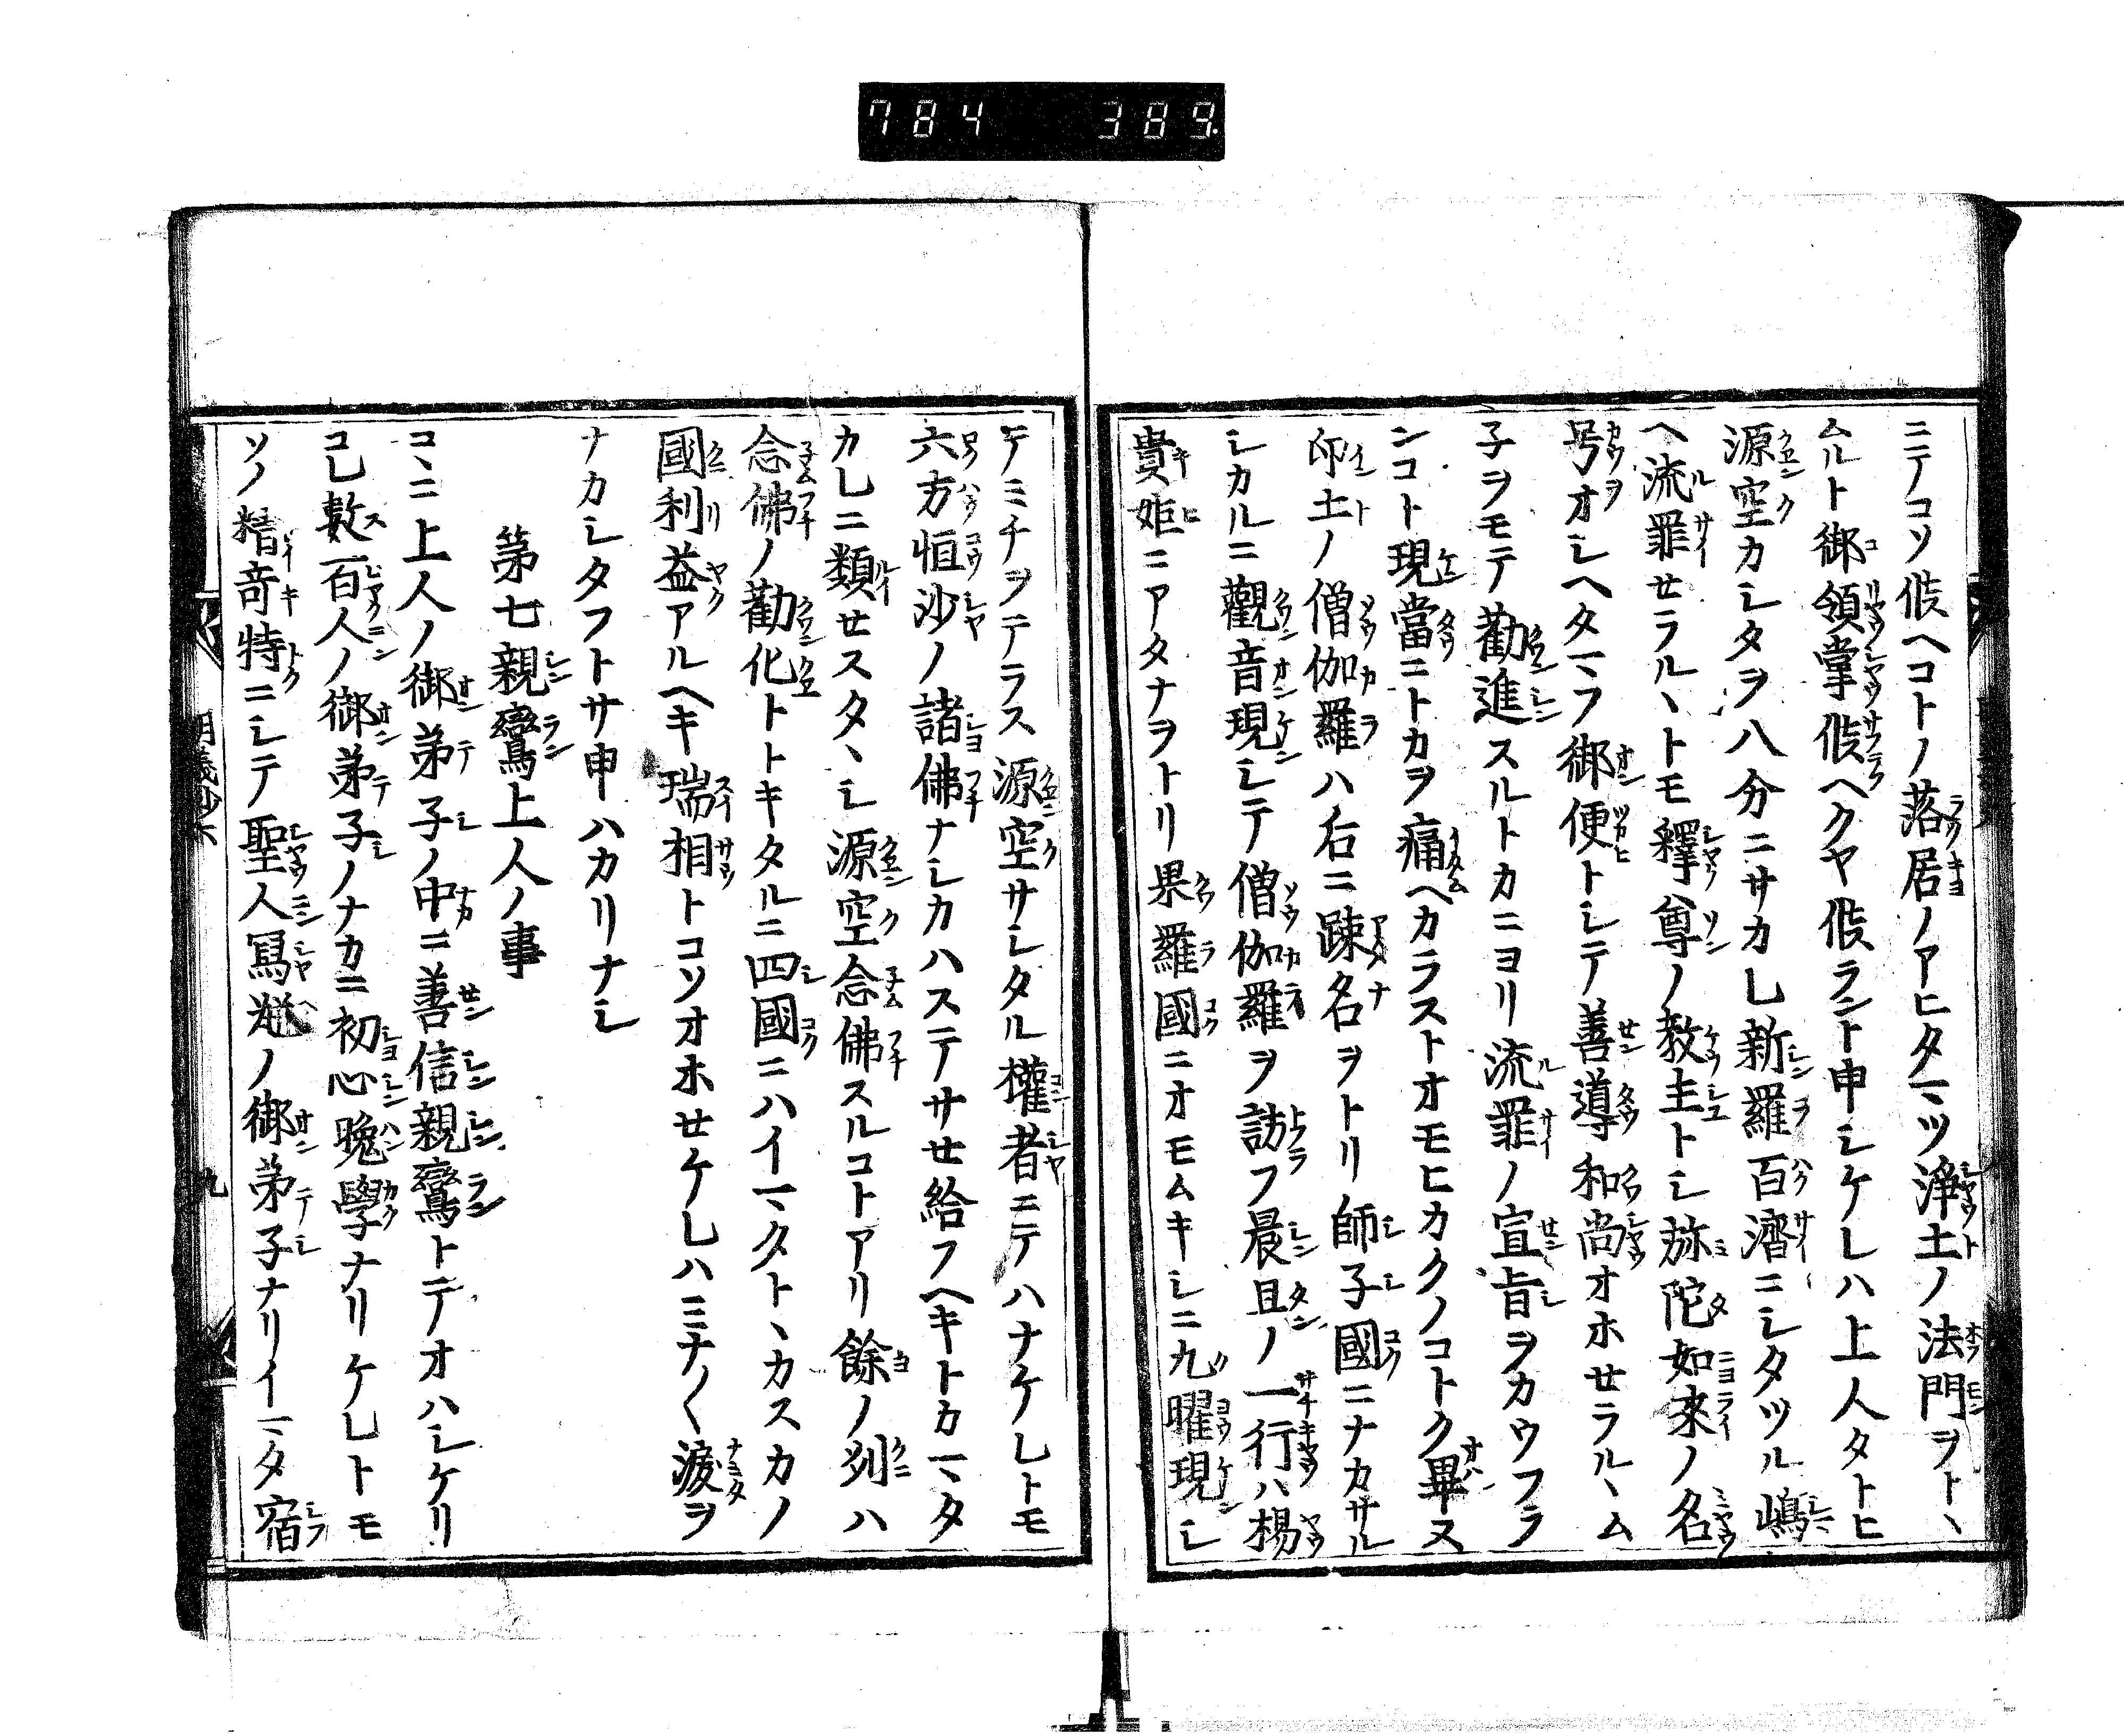 784 389
ニテコソ候ヘコトノ落居ノアヒタマツ淨土ノ法門ヲトヽ
ムルト御領掌候ヘクヤ候ラント申シケレハ上人タトヒ
源空カシタヲ八分ニサカレ新羅百濟ニシタツル嶋
ヘ流罪セラルヽトモ釋尊ノ教主トシ弥陀如來ノ名
号オシヘタマフ御使トシテ善導和尚オホセラルヽム
子ヲモテ勸進スルトカニヨリ流罪ノ宣旨ヲカウフラ
ンコト現當ニトカヲ痛ヘカラストオモヒカクノコトク畢ヌ
印土ノ僧伽羅ハ后ニ踈名ヲトリ師子國ニナカサル
シカルニ觀音現シテ僧伽羅ヲ訪フ晨旦ノ一行ハ楊
貴妃ニアタナヲトリ果羅國ニオモムキシニ九曜現シ
テミチヲテラス源空サシタル權者ニテハナケレトモ
六方恒沙ノ諸佛ナシカハステサセ給フヘキトカマタ
カレニ類セスタヽシ源空念佛スルコトアリ餘ノ州ハ
念佛ノ勸化トトキタルニ四國ニハイマタトヽカスカノ
國利益アルヘキ瑞相トコソオホセケレハミナ〱淚ヲ
ナカシタフトサ申ハカリナシ
第七親鸞上人ノ事
コヽニ上人ノ御弟子ノ中ニ善信親鸞トテオハシケリ
コレ數百人ノ御弟子ノナカニ初心晚學ナリケレトモ
ソノ精奇特ニシテ聖人寫瓶ノ御弟子ナリイマタ宿
明義抄六
九